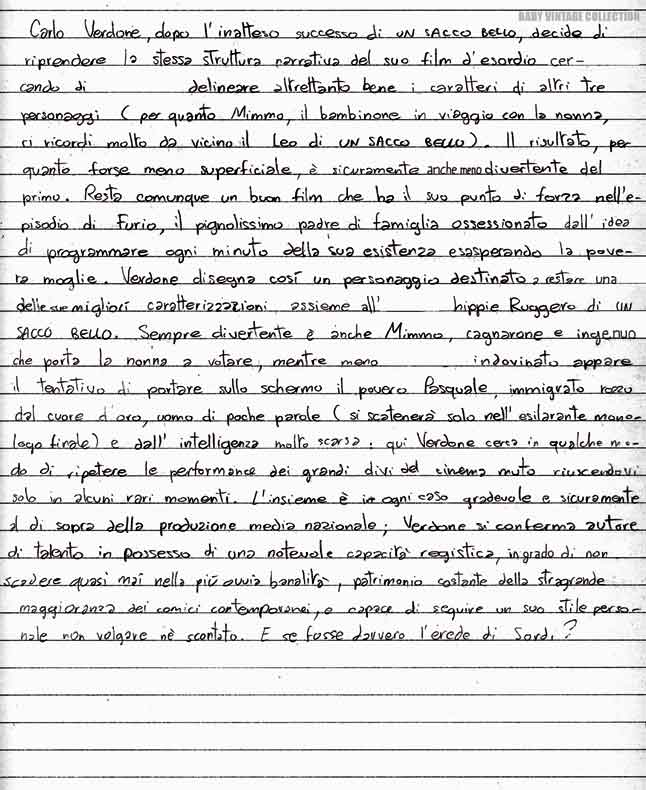 BABY VINTAGE COLLECTION
Carlo Verdone, dopo l'inatteso successo di UN SACCO BELLO, decide di
riprendere la stessa struttura narrativa del suo film d'esordio cer-
cando di delineare altrettanto bene i caratteri di altri tre
personaggi (per quanto Mimmo, il bambinone in viaggio con la nonna,
ci ricordi molto da vicino il Leo di UN SACCO BELLO). Il risultato, per
quanto forse meno superficiale, è sicuramente anche meno divertente del
primo. Resta comunque un buon film che ha il suo punto di forza nell'e-
pisodio di Furio, il pignolissimo padre di famiglia ossessionato dall'idea
di programmare ogni minuto della sua esistenza esasperando la pove-
ra moglie. Verdone disegna così un personaggio destinato a restare una
delle sue migliori caratterizzazioni assieme all' hippie Ruggero di UN
SACCO BELLO. Sempre divertente è anche Mimmo, cagnarone e ingenuo
che porta la nonna a votare, mentre meno indovinato appare
il tentativo di portare sullo schermo il povero Pasquale, immigrato rozzo
dal cuore d'oro, uomo di poche parole (si scatenerà solo nell'esilarante mono-
logo finale) e dall'intelligenza molto scarsa: qui Verdone cerca in qualche mo-
do di ripetere le performance dei grandi divi del cinema muto riuscendovi
solo in alcuni rari momenti. L'insieme è in ogni caso gradevole e sicuramente
al di sopra della produzione media nazionale; Verdone si conferma autore
di talento in possesso di una notevole capacità registica, in grado di non
scadere quasi mai nella più ovvia banalità, patrimonio costante della stragrande
maggioranza dei comici contemporanei, e capace di seguire un suo stile perso-
nale non volgare nè scontato. E se fosse davvero l'erede di Sordi?